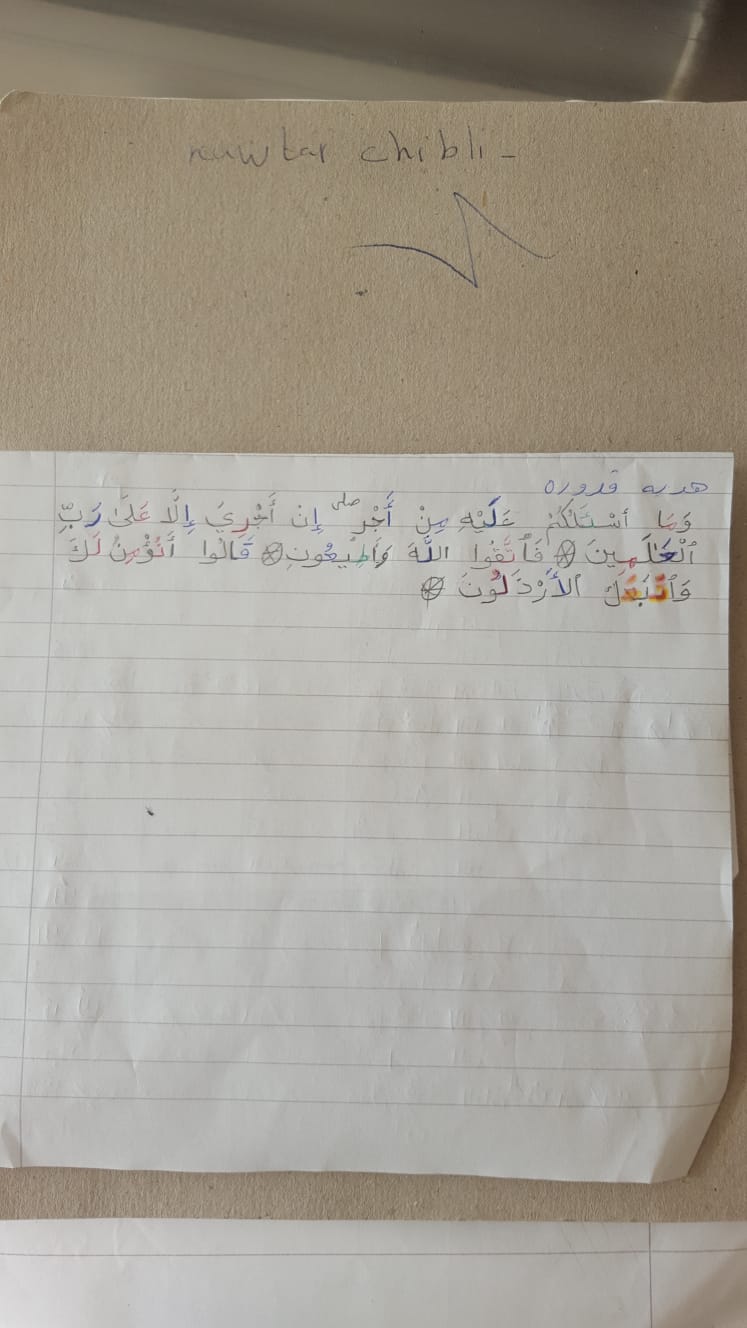 chibli -
هدية قدوره
وَمَا أَسْـَٔلُكُمْ عَلَيْهِ مِنْ أَجْرٍ صلى إِنْ أَجْرِيَ إِلَّا عَلَىٰ رَبِّ
ٱلْعَٰلَمِينَ فَٱتَّقُوا اللَّهَ وَأَطِيعُونِ قَالُوا أَنُؤْمِنُ لَكَ
وَٱتَّبَعَكَ الأَرْذَلُونَ